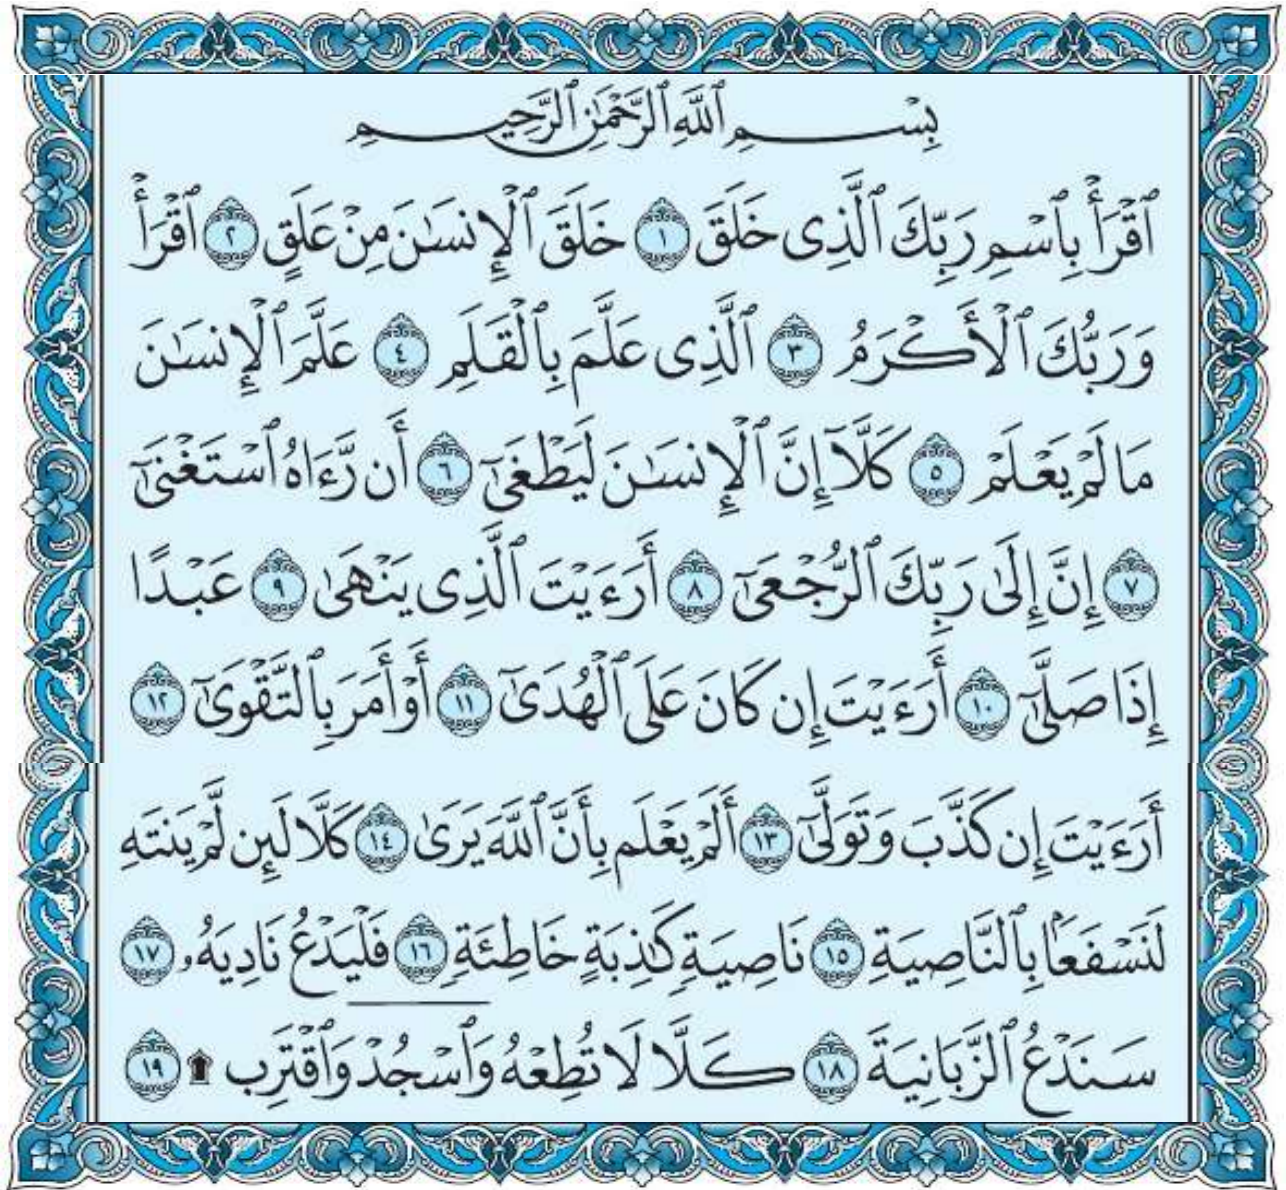 بِسْمِ ٱللَّهِ ٱلرَّحْمَٰنِ ٱلرَّحِيمِ
ٱقْرَأْ بِٱسْمِ رَبِّكَ ٱلَّذِى خَلَقَ ١ خَلَقَ ٱلْإِنسَٰنَ مِنْ عَلَقٍ ٢ ٱقْرَأْ
وَرَبُّكَ ٱلْأَكْرَمُ ٣ ٱلَّذِى عَلَّمَ بِٱلْقَلَمِ ٤ عَلَّمَ ٱلْإِنسَٰنَ
مَا لَمْ يَعْلَمْ ٥ كَلَّآ إِنَّ ٱلْإِنسَٰنَ لَيَطْغَىٰٓ ٦ أَن رَّءَاهُ ٱسْتَغْنَىٰٓ
٧ إِنَّ إِلَىٰ رَبِّكَ ٱلرُّجْعَىٰٓ ٨ أَرَءَيْتَ ٱلَّذِى يَنْهَىٰ ٩ عَبْدًا
إِذَا صَلَّىٰٓ ١٠ أَرَءَيْتَ إِن كَانَ عَلَى ٱلْهُدَىٰٓ ١١ أَوْ أَمَرَ بِٱلتَّقْوَىٰٓ ١٢
أَرَءَيْتَ إِن كَذَّبَ وَتَوَلَّىٰٓ ١٣ أَلَمْ يَعْلَم بِأَنَّ ٱللَّهَ يَرَىٰ ١٤ كَلَّا لَئِن لَّمْ يَنتَهِ
لَنَسْفَعًۢا بِٱلنَّاصِيَةِ ١٥ نَاصِيَةٍ كَٰذِبَةٍ خَاطِئَةٍ ١٦ فَلْيَدْعُ نَادِيَهُۥ ١٧
سَنَدْعُ ٱلزَّبَانِيَةَ ١٨ كَلَّا لَا تُطِعْهُ وَٱسْجُدْ وَٱقْتَرِب ۩ ١٩